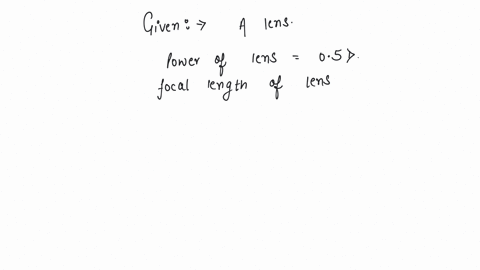 Given:→ A lens.
Power of lens = 0.5 D.
focal length of lens